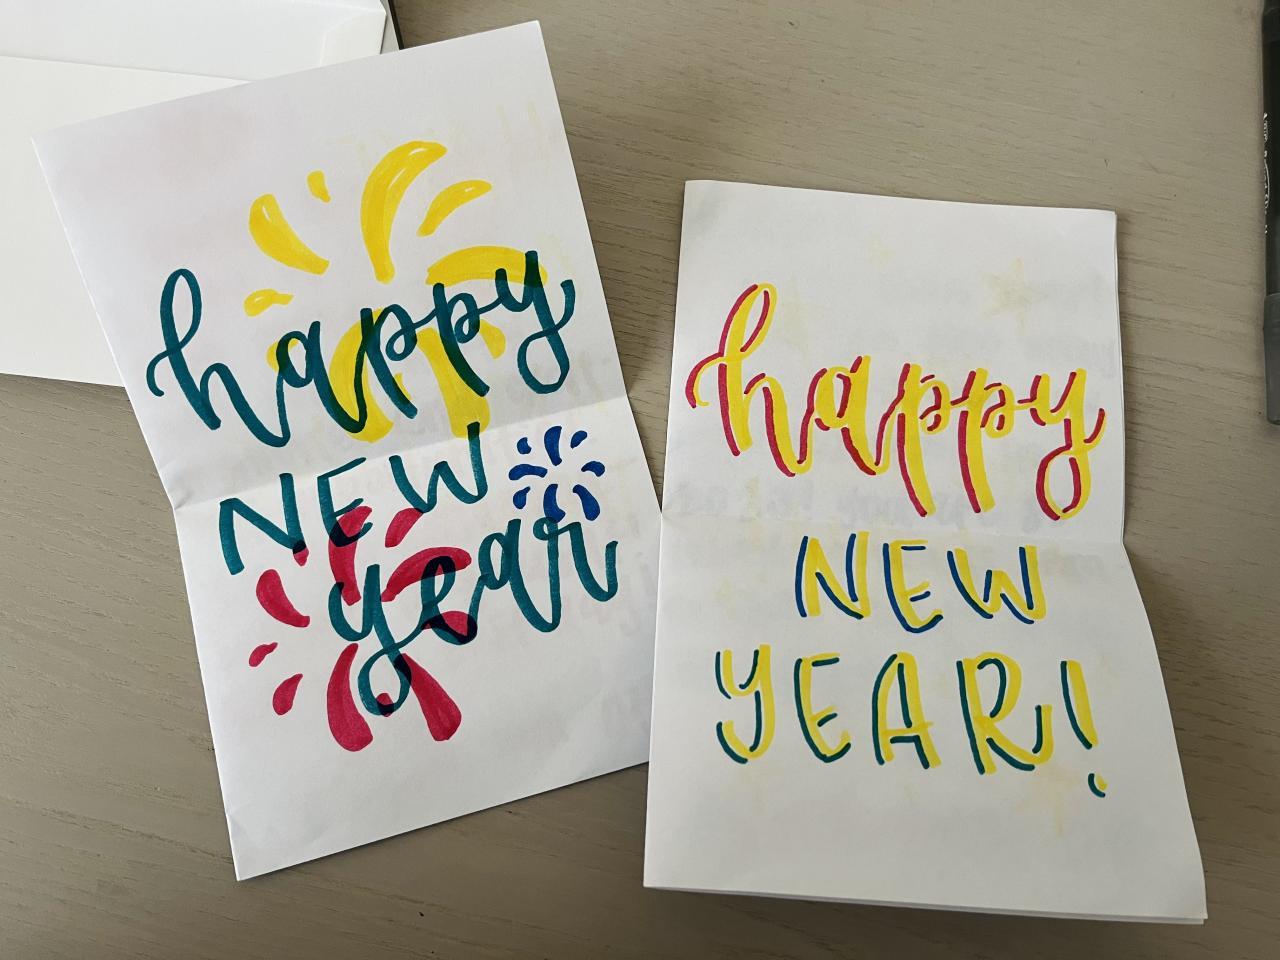 happy
NEW
year
happy
NEW
YEAR!